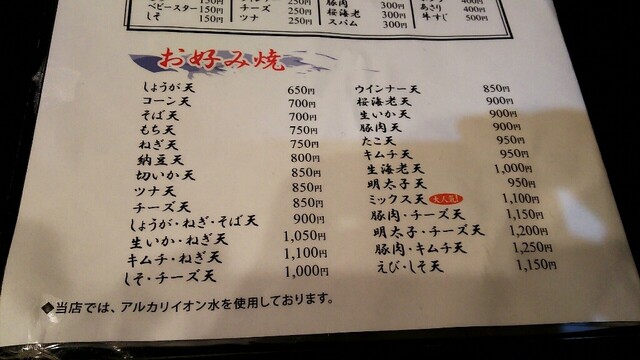 ベビースター 150円
しそ 150円
チーズ 250円
ツナ 250円
豚肉 300円
桜海老 300円
スパム 300円
あさり 400円
牛すじ 500円
お好み焼
しょうが天 650円
コーン天 700円
そば天 700円
もち天 750円
ねぎ天 750円
納豆天 800円
切いか天 850円
ツナ天 850円
チーズ天 850円
しょうが・ねぎ・そば天 900円
生いか・ねぎ天 1,050円
キムチ・ねぎ天 1,100円
しそ・チーズ天 1,000円
ウインナー天 850円
桜海老天 900円
生いか天 900円
豚肉天 900円
たこ天 950円
キムチ天 950円
生海老天 1,000円
明太子天 950円
ミックス天 大人気! 1,100円
豚肉・チーズ天 1,150円
明太子・チーズ天 1,200円
豚肉・キムチ天 1,250円
えび・しそ天 1,150円
◆当店では、アルカリイオン水を使用しております。